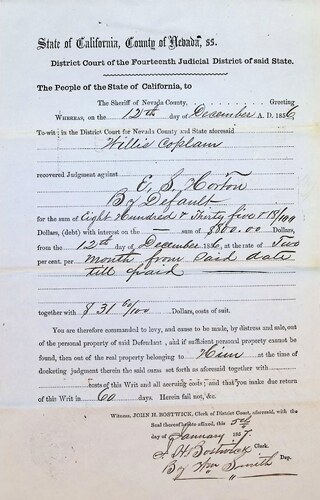 State of California, County of Nevada, ss.
District Court of the Fourteenth Judicial District of said State.
The People of the State of California, to
The Sheriff of Nevada County, Greeting
WHEREAS, on the 12th day of December A. D. 1856,
To-wit in the District Court for Nevada County and State aforesaid
Willis Coplain
recovered Judgment against
E. S. Horton
By Default
for the sum of Eight Hundred & Thirty five & 18/100
Dollars, (debt) with interest on the — sum of $800.00 Dollars,
from the 12th day of December 1856, at the rate of Two
per cent. per month from said date
till paid
together with $ 31 00/100 Dollars, costs of suit.
You are therefore commanded to levy, and cause to be made, by distress and sale, out
of the personal property of said Defendant , and if sufficient personal property cannot be
found, then out of the real property belonging to Him at the time of
docketing judgment therein the said sums set forth as aforesaid together with
costs of this Writ and all accruing costs; and that you make due return
of this Writ in 60 days. Herein fail not, &c.
Witness, JOHN H. BOSTWICK, Clerk of District Court, aforesaid, with the
Seal thereof hereto affixed, this 5th
day of January 1857.
J. H. Bostwick Clerk.
By Wm Smith Dep.